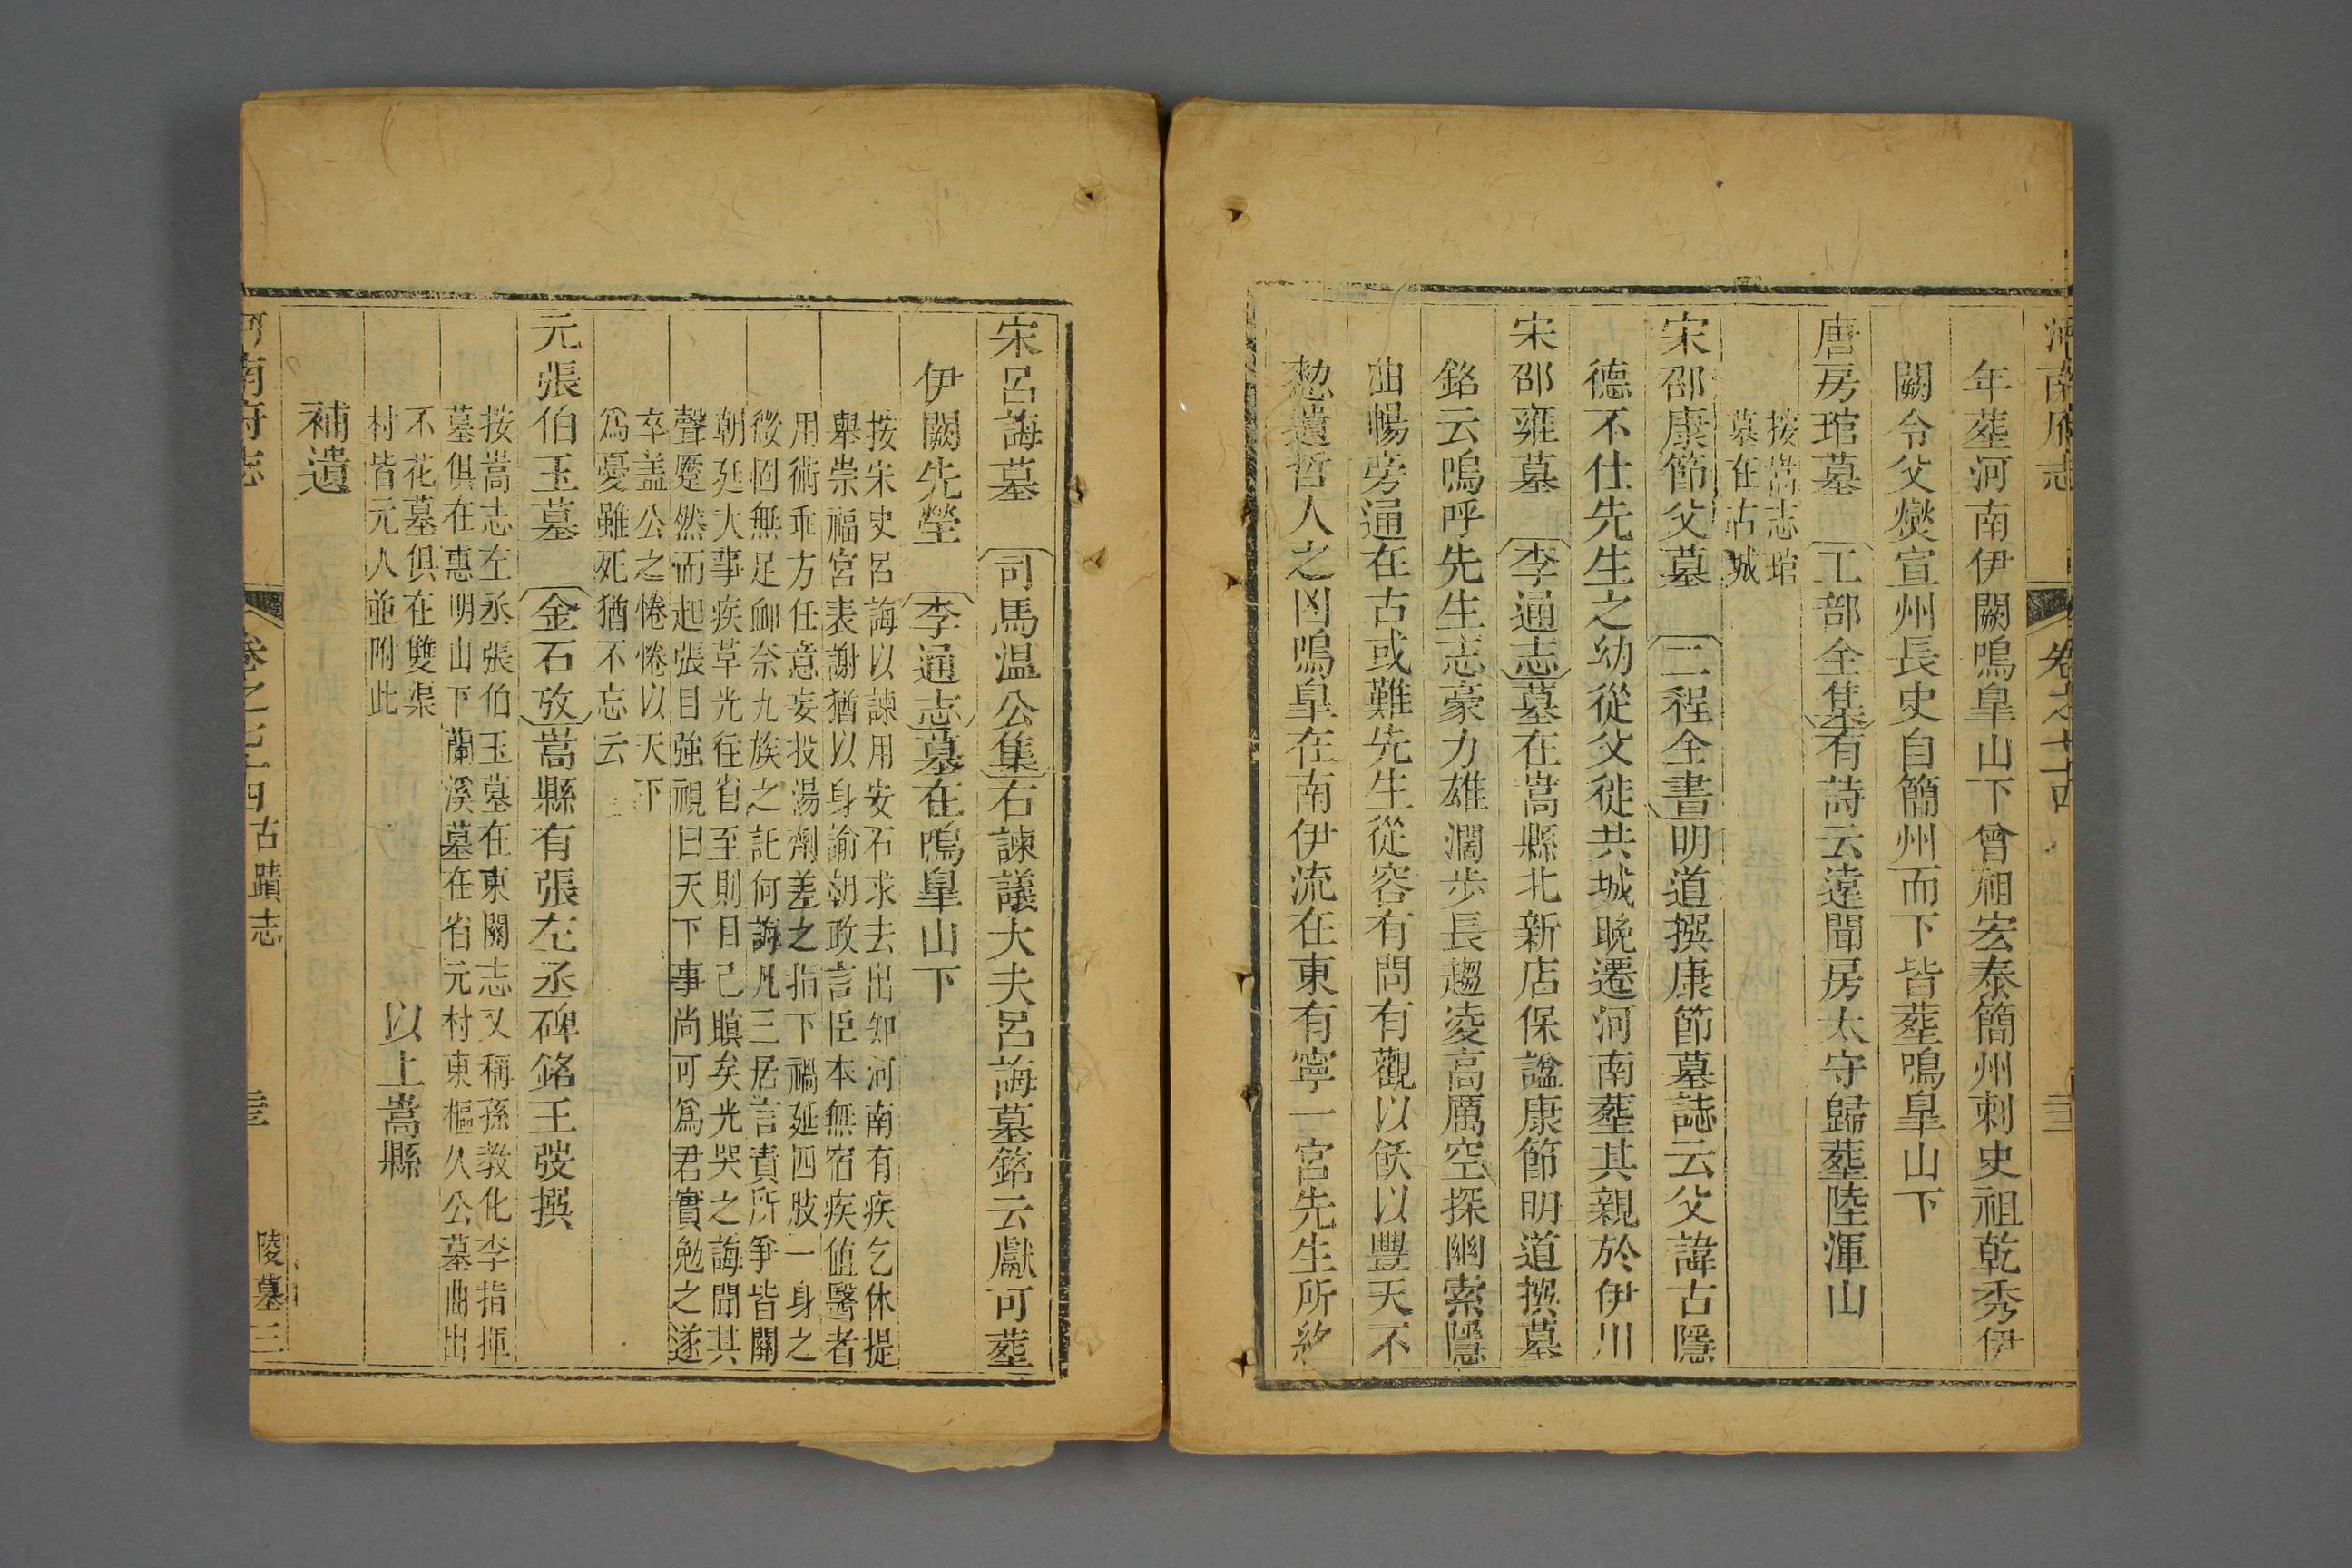 河南府志 卷之七十四
年葬河南伊闕鳴臯山下曾祖宏泰簡州刺史祖乾秀伊
闕令父爕宣州長史自簡州而下皆葬鳴臯山下
唐房琯墓 工部全集有詩云遠聞房太守歸葬陸渾山
按嵩志琯
墓在古城
宋邵康節父墓 二程全書明道撰康節墓誌云父諱古隱
德不仕先生之幼從父徙共城晚遷河南葬其親於伊川
宋邵雍墓 李通志墓在嵩縣北新店保諡康節明道撰墓
銘云嗚呼先生志豪力雄濶步長趨凌高厲空探幽索隱
曲暢旁通在古或難先生從容有問有觀以飫以豐天不
憖遺哲人之凶鳴臯在南伊流在東有寧一宮先生所終
宋呂誨墓 司馬温公集右諫議大夫呂誨墓銘云獻可葬
伊闕先塋 李通志墓在鳴臯山下
按宋史呂誨以諫用安石求去出知河南有疾乞休提
舉崇福宮表謝猶以身諭朝政言臣本無宿疾値醫者
用術乖方任意妄投湯劑差之指下禍延四肢一身之
微固無足卹奈九族之託何誨凡三居言責所爭皆關
朝廷大事疾革光往省至則目已瞑矣光哭之誨聞其
聲蹷然而起張目強視曰天下事尚可爲君實勉之遂
卒盖公之惓惓以天下
爲憂雖死猶不忘云
元張伯玉墓 金石攷嵩縣有張左丞碑銘王弢撰
按嵩志左丞張伯玉墓在東關志又稱孫教化李指揮
墓俱在惠明山下蘭溪墓在省元村東樞久公墓曲出
不花墓俱在雙渠
村皆元人並附此
以上嵩縣
補遺
河南府志 卷之七十四 古蹟志 陵墓三